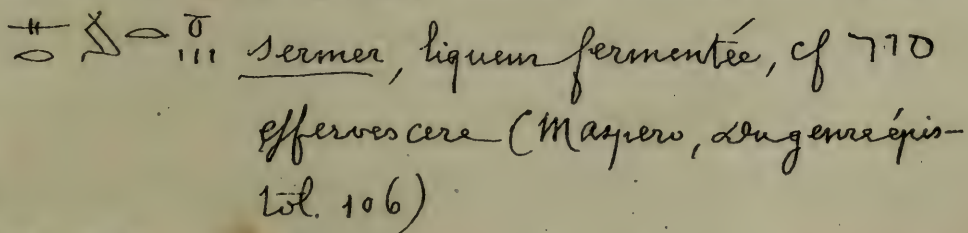 sermer, liqueur fermentée, cf
effervescere (Maspero, Du genre épis-
tol. 106)